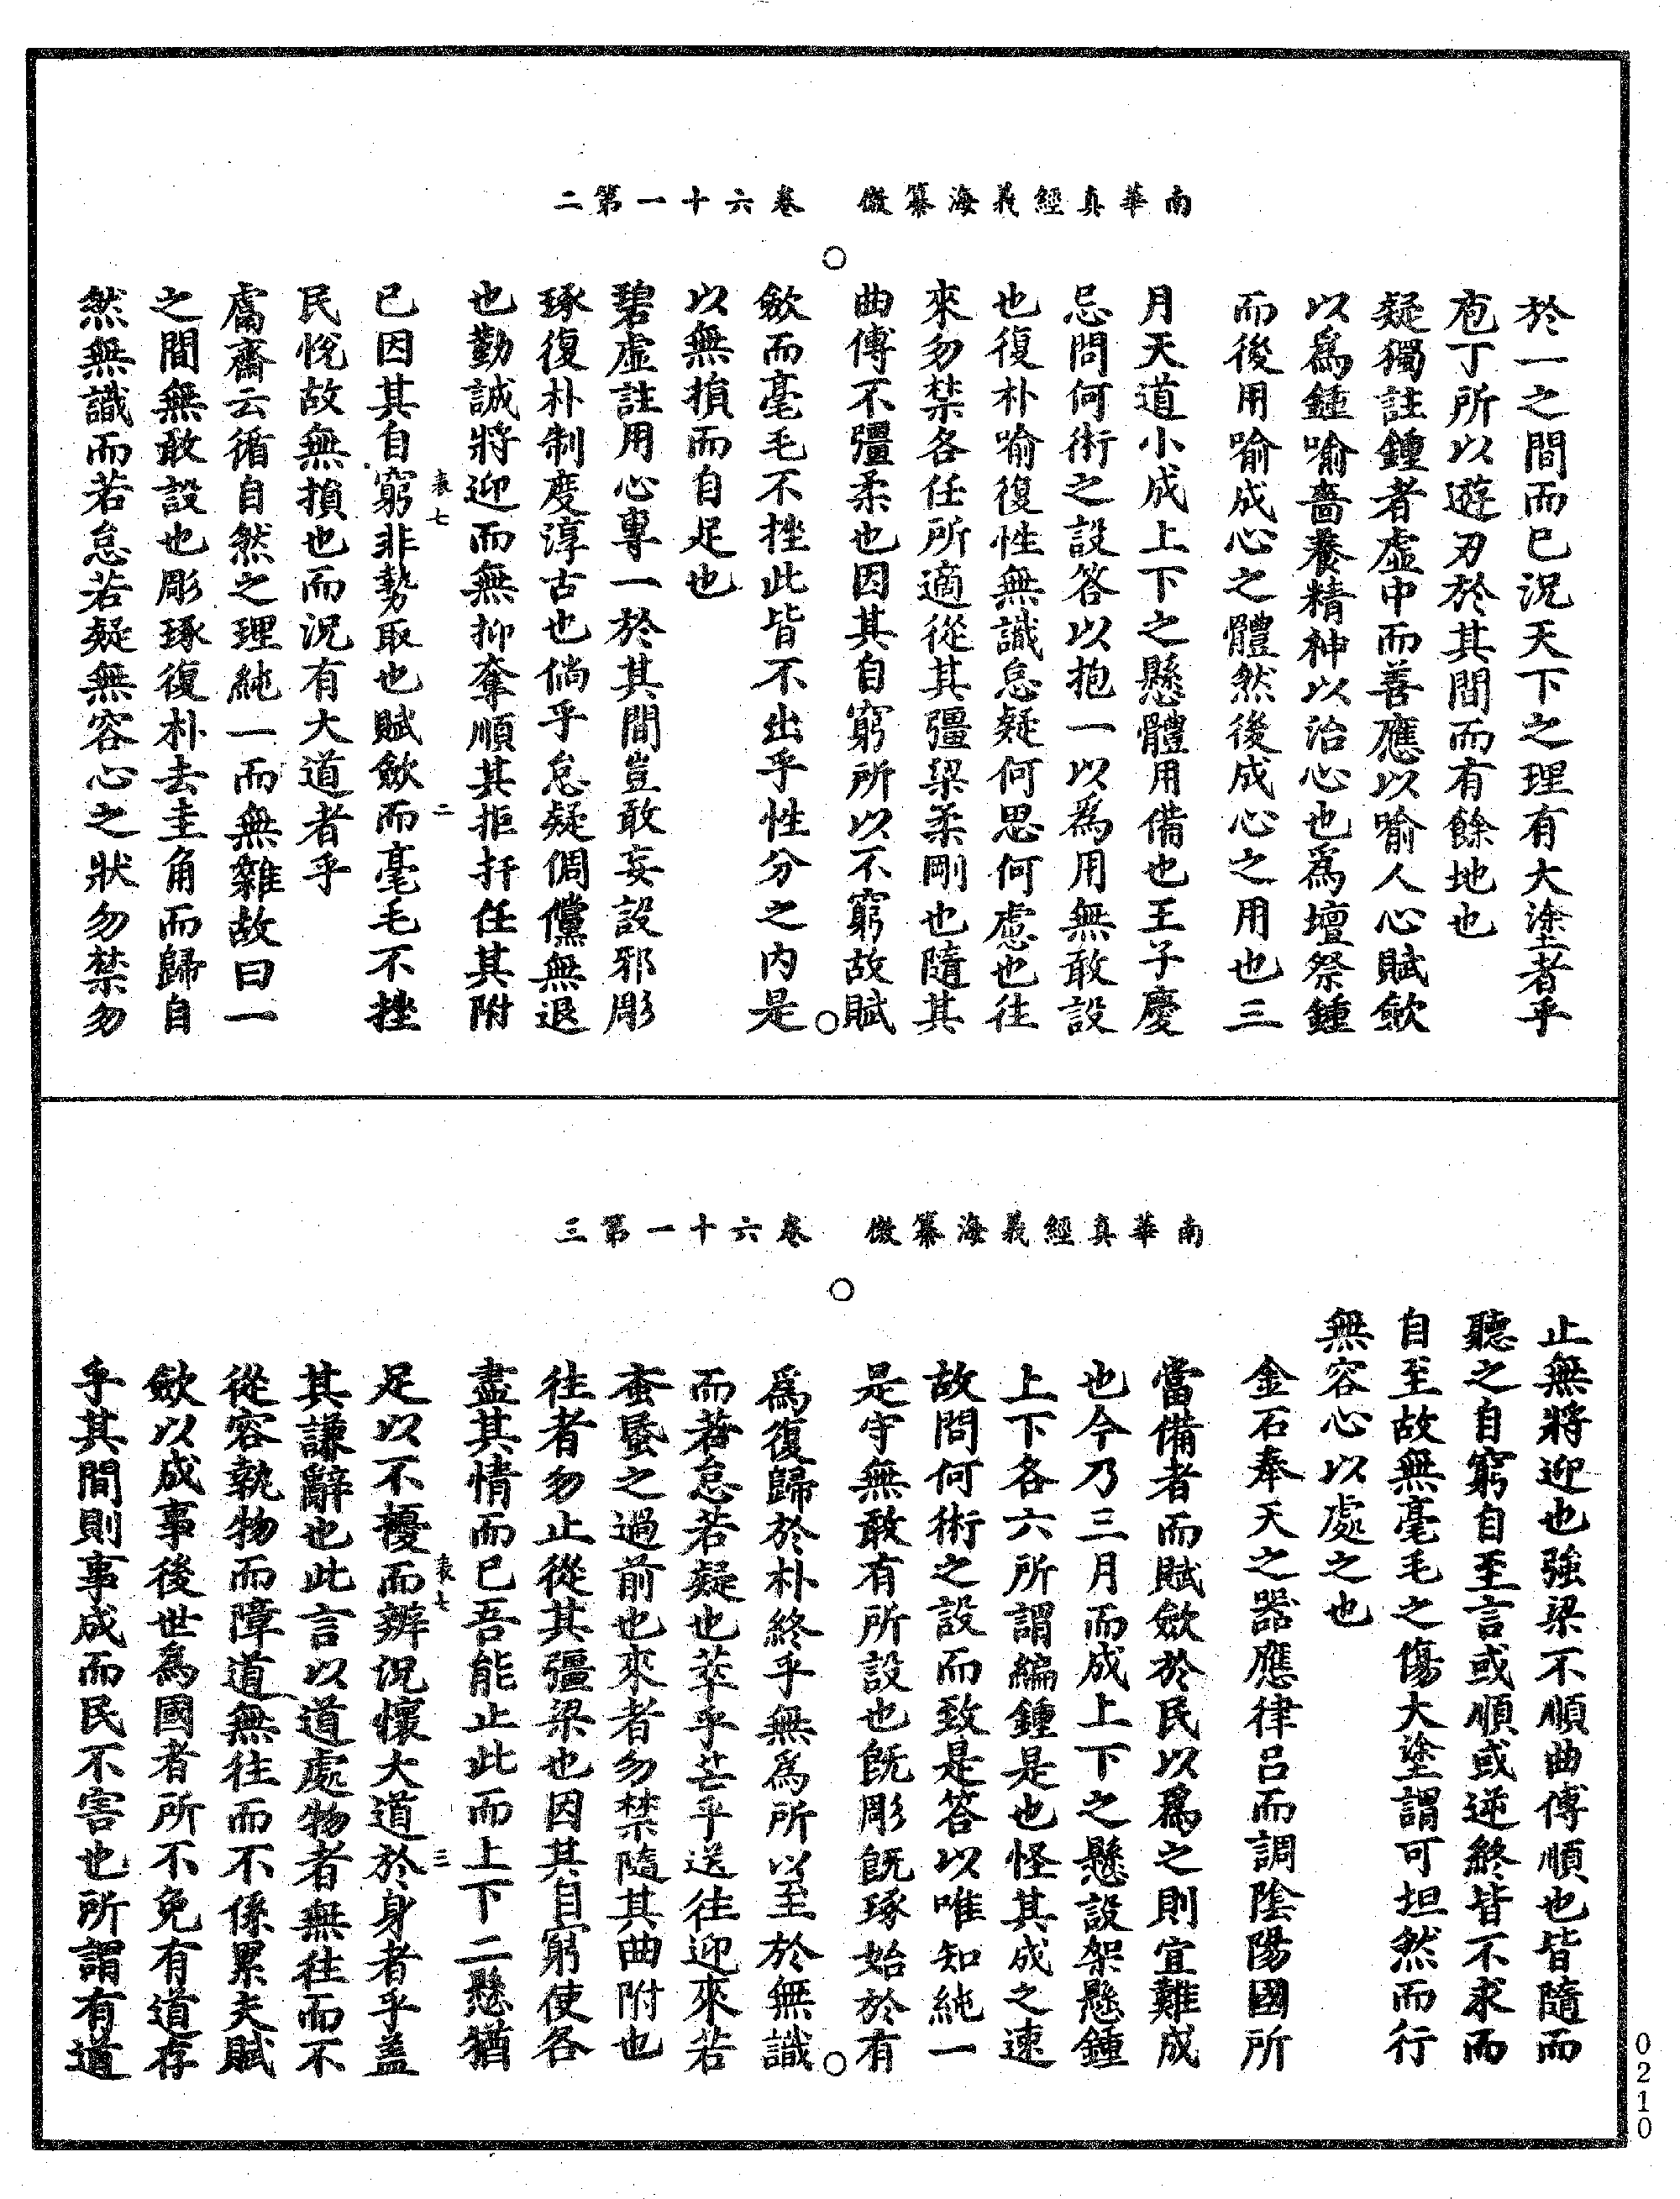 南華真經義海纂微　卷六十一第二
於一之間而已況天下之理有大塗者乎
庖丁所以遊刃於其間而有餘地也
疑獨註鍾者虛中而善應以喻人心賦斂
以爲鍾喻嗇養精神以治心也爲壇祭鍾
而後用喻成心之體然後成心之用也三
月天道小成上下之懸體用備也王子慶
忌問何術之設答以抱一以為用無敢設
也復朴喻復性無識怠疑何思何慮也往
來勿禁各任所適從其彊梁柔剛也隨其
曲傅不彊柔也因其自窮所以不窮故賦
斂而毫毛不挫此皆不出乎性分之內是
以無損而自足也
碧虛註用心專一於其間豈敢妄設邪彫
琢復朴制度淳古也倘乎怠疑倜儻無退
也勤誠將迎而無抑奪順其拒扞任其附
已因其自窮非勢取也賦斂而毫毛不挫
民悅故無損也而況有大道者乎
鬳齋云循自然之理純一而無雜故曰一
之間無敢設也彫琢復朴去圭角而歸自
然無識而若怠若疑無容心之狀勿禁勿
表七
二
南華真經義海纂微　卷六十一第三
止無將迎也強梁不順曲傅順也皆隨而
聽之自窮自至言或順或逆終皆不求而
自至故無毫毛之傷大塗謂可坦然而行
無容心以處之也
金石奉天之器應律呂而調陰陽國所
當備者而賦斂於民以爲之則宜難成
也今乃三月而成上下之懸設架懸鍾
上下各六所謂編鍾是也怪其成之速
故問何術之設而致是答以唯知純一
是守無敢有所設也旣彫旣琢始於有
爲復歸於朴終乎無為所以至於無識
而若怠若疑也萃乎芒乎送往迎來若
蚉䖟之過前也來者勿禁隨其曲附也
往者勿止從其彊梁也因其自窮使各
盡其情而已吾能止此而上下二懸猶
足以不擾而辨況懷大道於身者乎蓋
其謙辭也此言以道處物者無往而不
從容執物而障道無往而不係累夫賦
斂以成事後世為國者所不免有道存
乎其間則事成而民不害也所謂有道
表七
三
0210